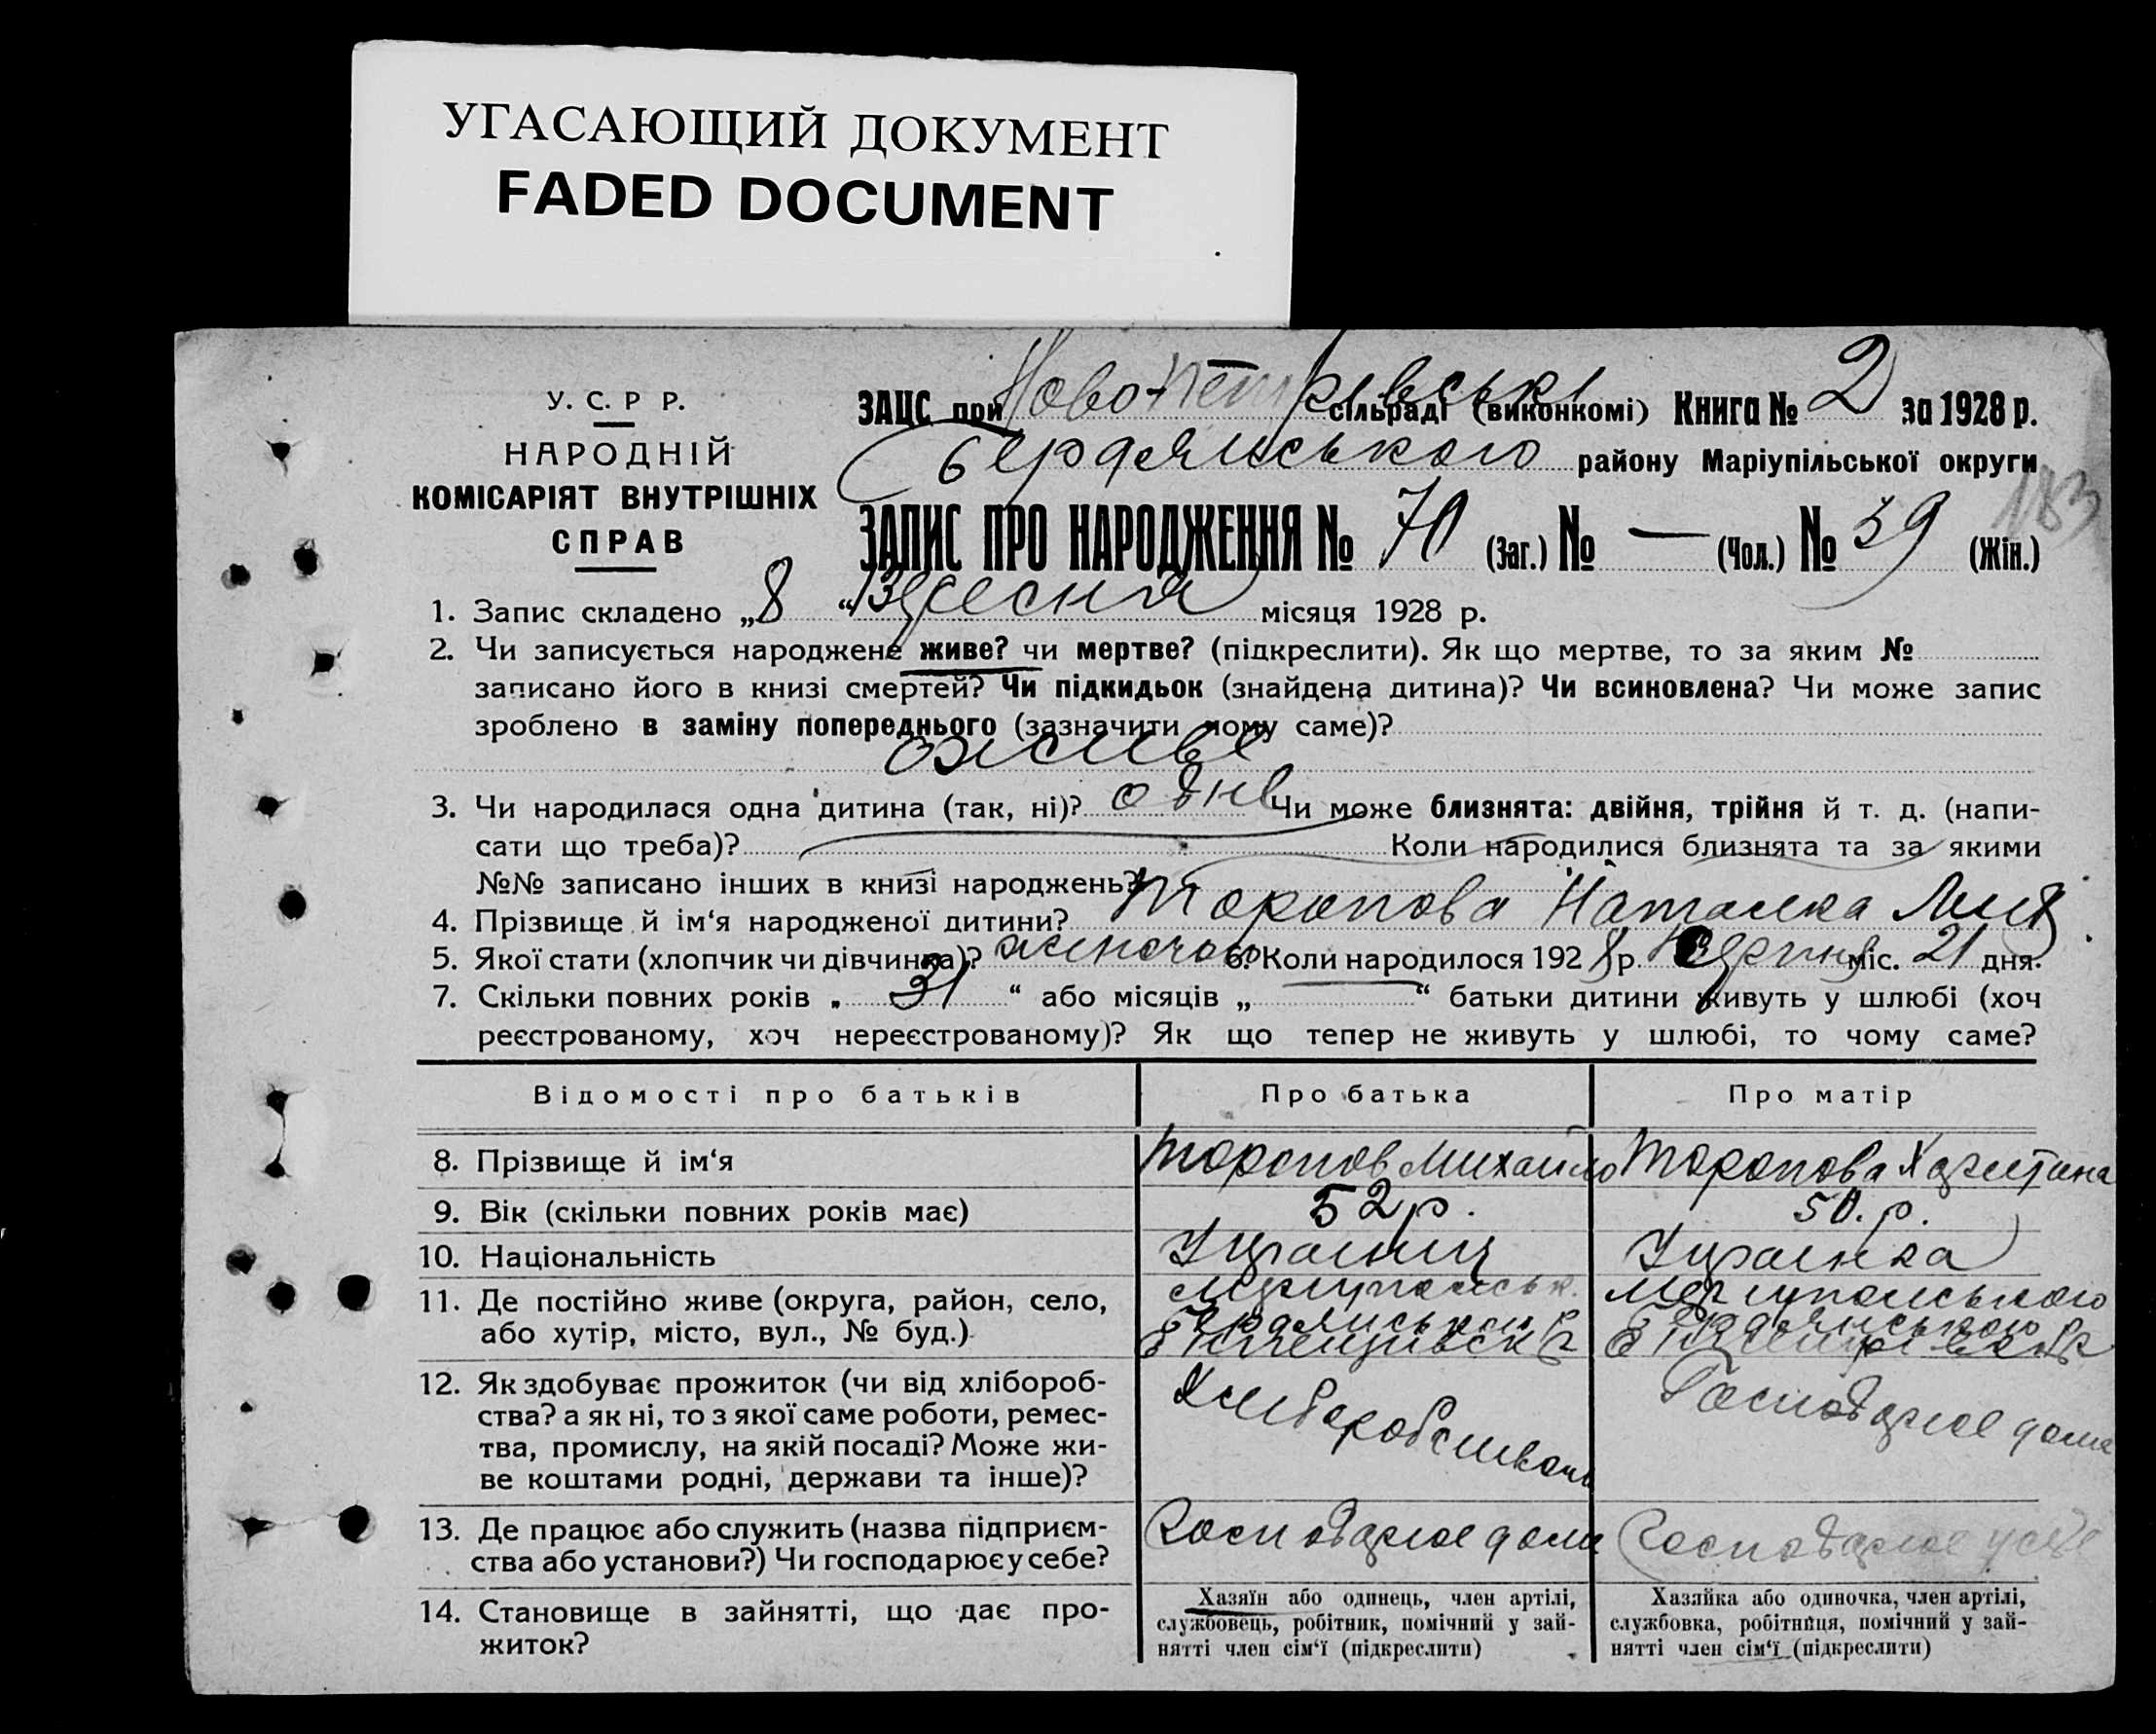 УГАСАЮЩИЙ ДОКУМЕНТ
FADED DOCUMENT
У. С. Р Р.
НАРОДНІЙ
КОМІСАРІЯТ ВНУТРІШНІХ
СПРАВ
ЗАЦС при Ново-Петрівські сільраді (виконкомі) Книга № 2 за 1928 р.
Бердянського району Маріупільської округи
183
ЗАПИС ПРО НАРОДЖЕННЯ № 70 (Заг.) № — (Чол.) № 39 (Жін.)
1. Запис складено „8“ Вересня місяця 1928 р.
2. Чи записується народжене живе? чи мертве? (підкреслити). Як що мертве, то за яким №
записано його в книзі смертей? Чи підкидьок (знайдена дитина)? Чи всиновлена? Чи може запис
зроблено в заміну попереднього (зазначити чому саме)?
живе
3. Чи народилася одна дитина (так, ні)? одне Чи може близнята: двійня, трійня й т. д. (напи-
сати що треба)? Коли народилися близнята та за якими
№№ записано інших в книзі народжень?
4. Прізвище й ім‘я народженої дитини? Торопова Наталка
5. Якої стати (хлопчик чи дівчинка)? жіночої 6. Коли народилося 1928 р. Серпня міс. 21 дня.
7. Скільки повних років „ 31 “ або місяців „ — “ батьки дитини живуть у шлюбі (хоч
реєстрованому, хоч нереєстрованому)? Як що тепер не живуть у шлюбі, то чому саме?
Відомості про батьків Про батька Про матір
8. Прізвище й ім‘я Торопов Михайло Торопова Харитина
9. Вік (скільки повних років має) 52 р. 50. р.
10. Національність Українц Українка
11. Де постійно живе (округа, район, село, Маріупольськ. Маріупольського
або хутір, місто, вул., № буд.) Бердянського Бердянського
12. Як здобуває прожиток (чи від хлібороб- Господарює дома
ства? а як ні, то з якої саме роботи, ремес-
тва, промислу, на якій посаді? Може жи-
ве коштами родні, держави та інше)?
13. Де працює або служить (назва підприєм- Господарює дома Господарює у себе
ства або установи?) Чи господарює у себе?
14. Становище в зайнятті, що дає про-
житок?
Хазяїн або одинець, член артілі,
службовець, робітник, помічний у зай-
нятті член сім‘ї (підкреслити)
Хазяйка або одиночка, член артілі,
службовка, робітниця, помічний у зай-
нятті член сім‘ї (підкреслити)